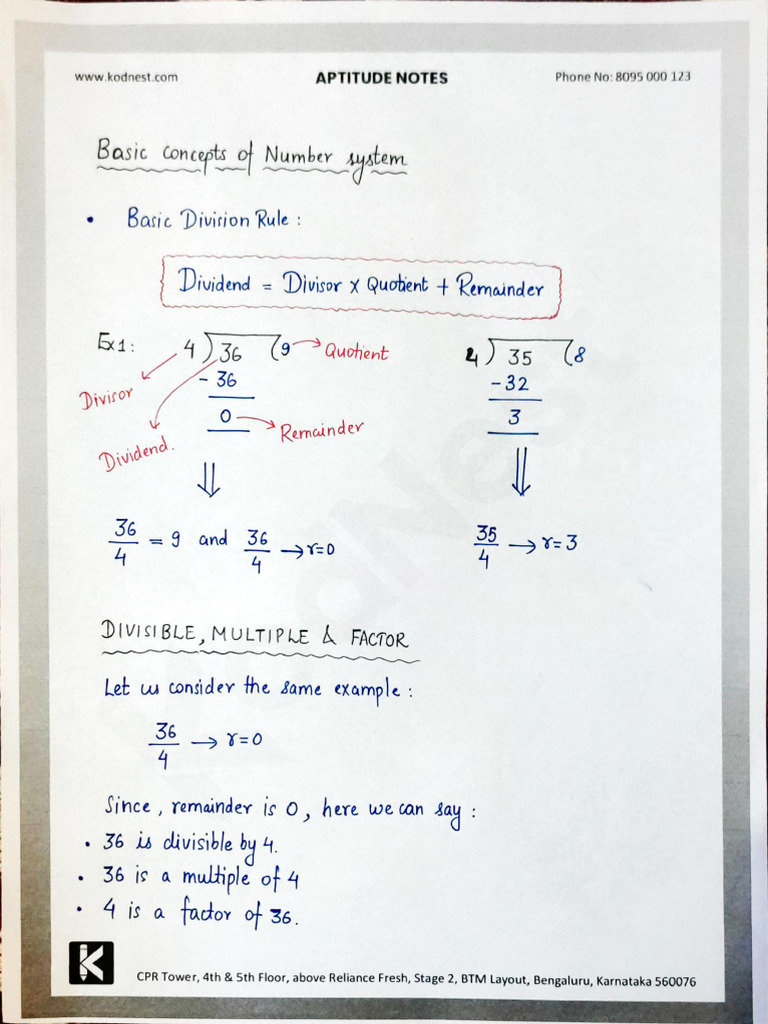 www.kodnest.com APTITUDE NOTES Phone No: 8095 000 123
Basic Concepts of Number system
• Basic Division Rule :
Dividend = Divisor x Quotient + Remainder
Ex1: 4 ) 36 ( 9 → Quotient
4 ) 35 ( 8
- 36
- 32
Divisor
0 → Remainder
3
Dividend.
⇓ ⇓
36/4 = 9 and 36/4 → r=0
35/4 → r=3
DIVISIBLE, MULTIPLE & FACTOR
Let us consider the same example :
36/4 → r=0
Since, remainder is 0, here we can say :
• 36 is divisible by 4.
• 36 is a multiple of 4
• 4 is a factor of 36.
K CPR Tower, 4th & 5th Floor, above Reliance Fresh, Stage 2, BTM Layout, Bengaluru, Karnataka 560076
KodNest